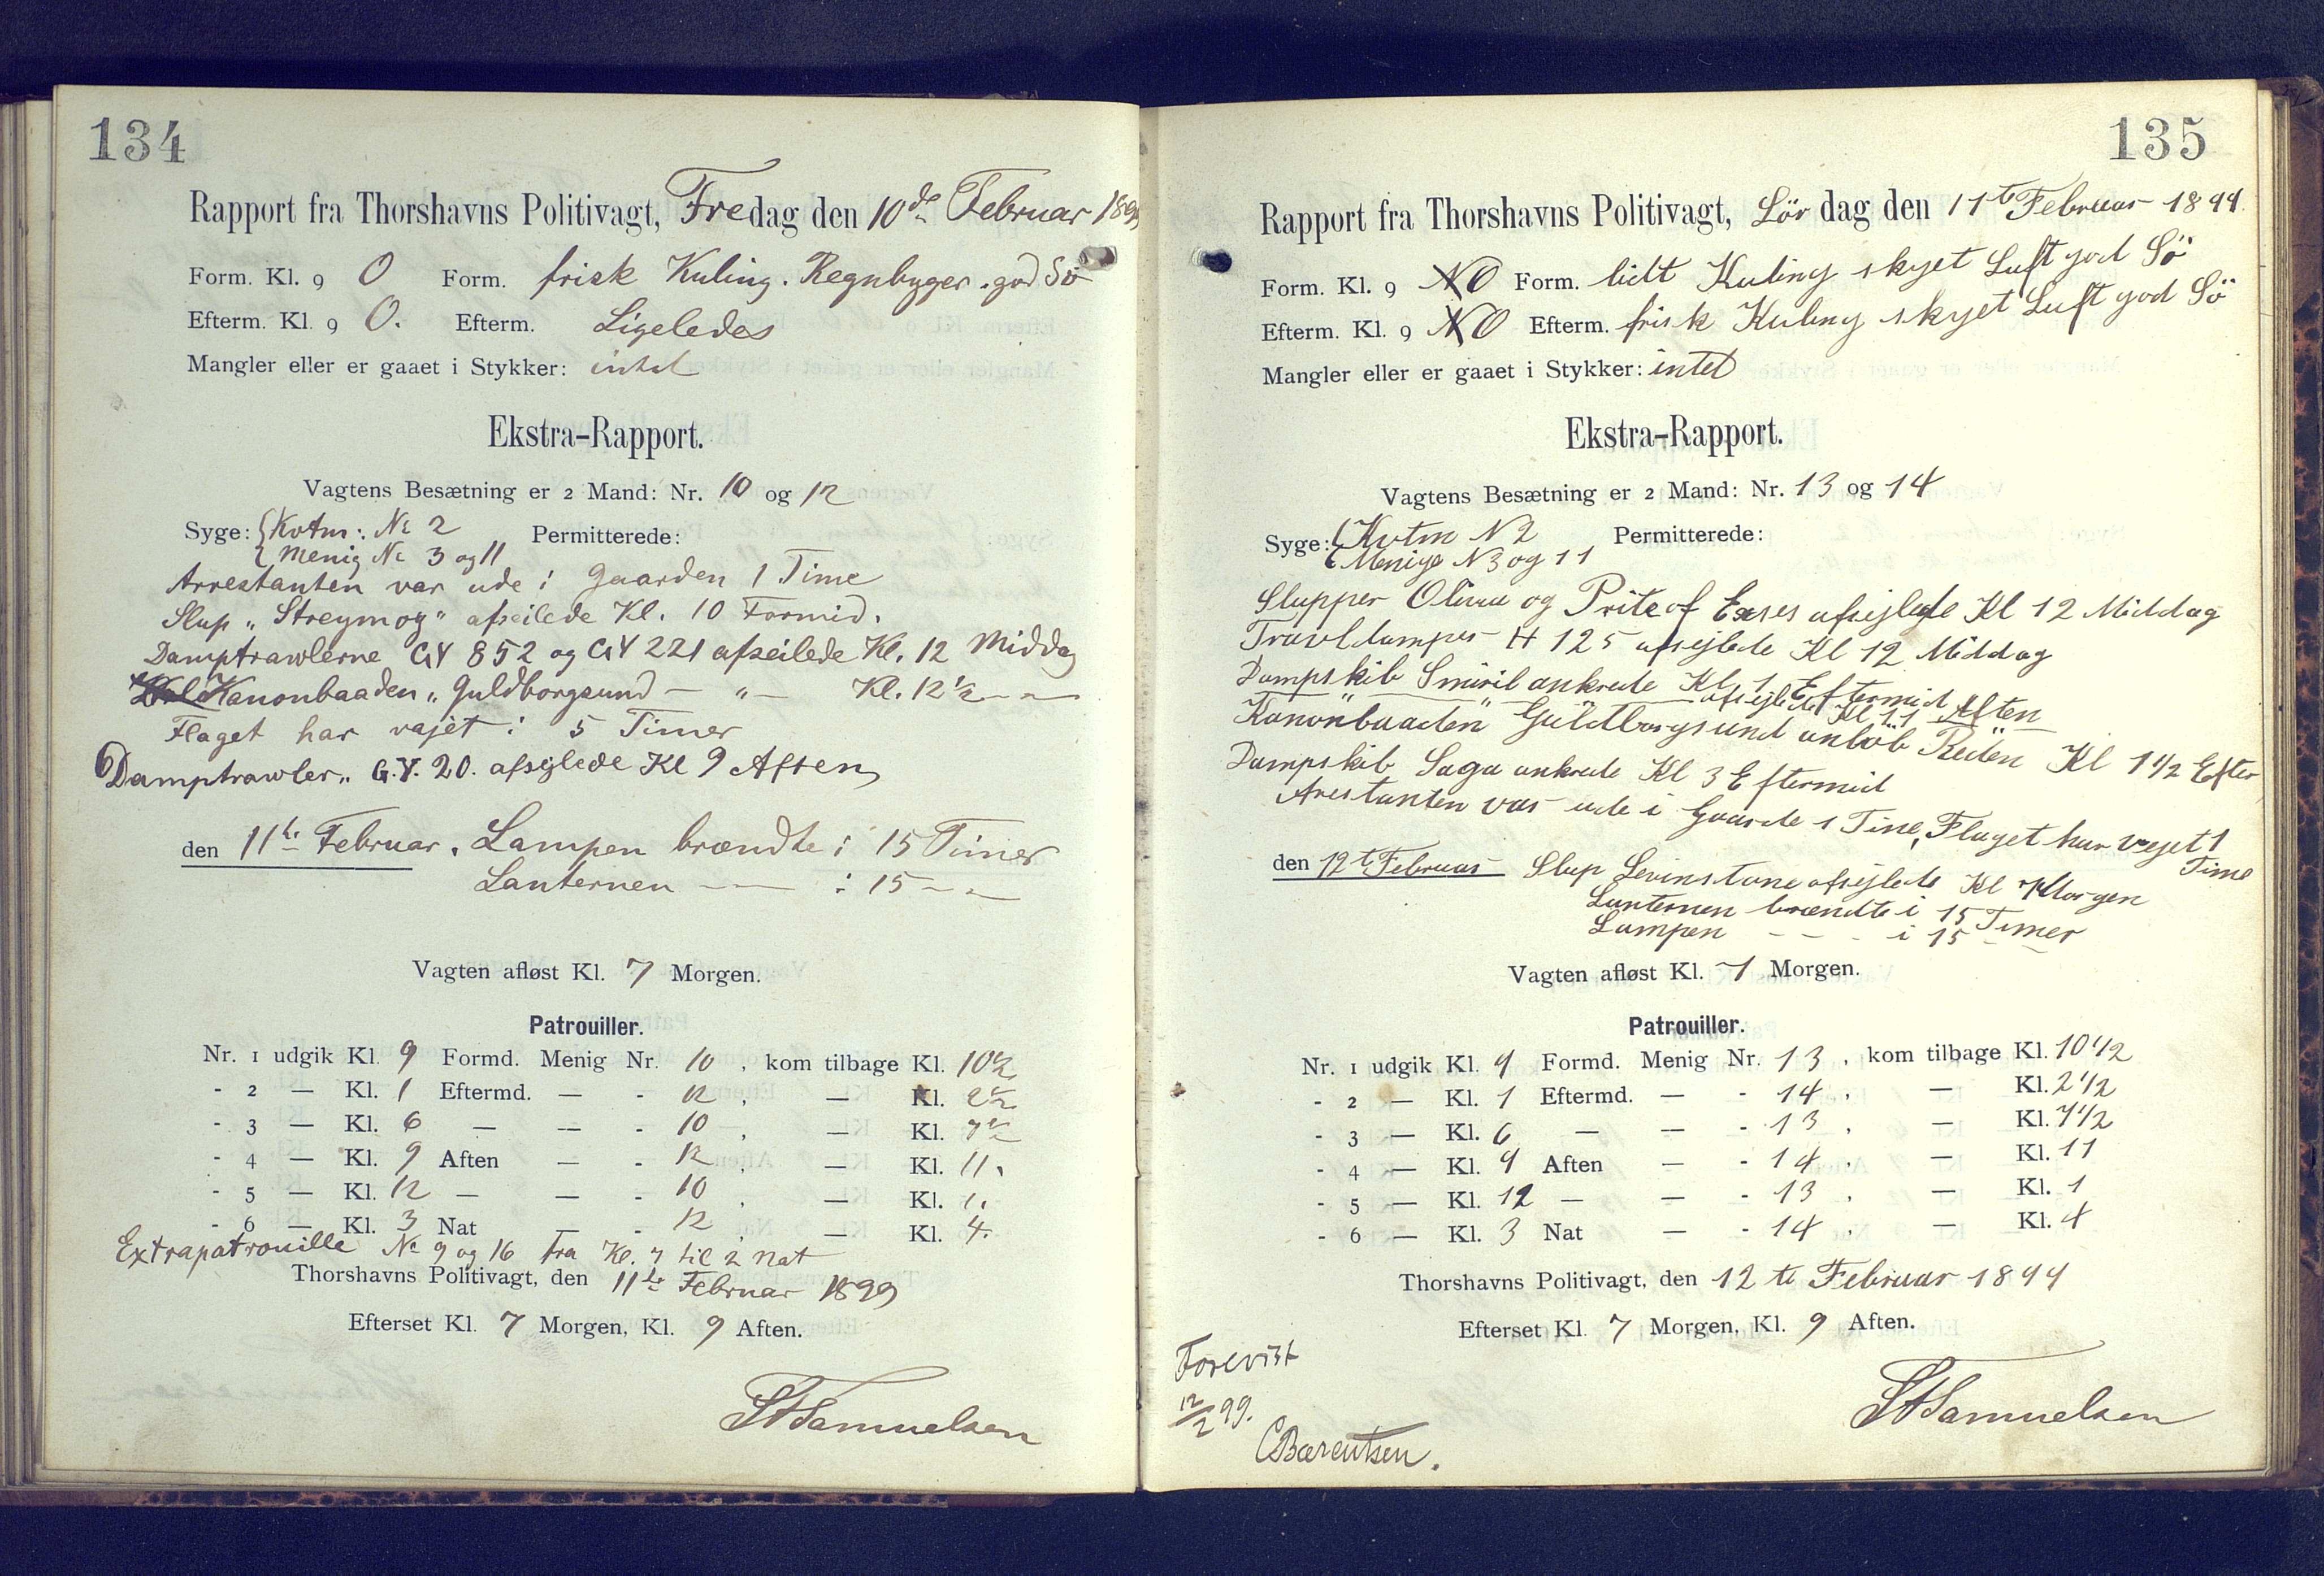 134
Rapport fra Thorshavns Politivagt, Fredag den 10de Februar 1899
Form. Kl. 9 O Form. frisk Kuling. Regnbyger. god Sö
Efterm. Kl. 9 O. Efterm. Ligeledes
Mangler eller er gaaet i Stykker: intet
Ekstra-Rapport.
Vagtens Besætning er 2 Mand: Nr. 10 og 12
Syge: Kvtm: No 2 Permitterede:
Menig No 3 og 11
Arrestanten var ude i Gaarden 1 Time
Slup „Streymoy“ afseilede Kl. 10 Formid.
Damptrawlerne GY 852 og GY 221 afseilede Kl. 12 Middag
Kanonbaaden „Guldborgsund — „ — Kl. 12½ — „ —
Flaget har vajet i 5 Timer
Damptrawler „ G.Y. 20. afsejlede Kl 9 Aften
den 11te Februar. Lampen brændte i 15 Timer
Lanternen — — i 15 — „ —
Vagten afløst Kl. 7 Morgen.
Patrouiller.
Nr. 1 udgik Kl. 9 Formd. Menig Nr. 10, kom tilbage Kl. 10½
- 2 — Kl. 1 Eftermd. — - 12, — Kl. 2½
- 3 — Kl. 6 — — - 10, — Kl. 7½
- 4 — Kl. 9 Aften — - 12, — Kl. 11.
- 5 — Kl. 12 — — - 10, — Kl. 1.
- 6 — Kl. 3 Nat — - 12, — Kl. 4.
Extrapatrouille No 9 og 16 fra Kl. 7 til 2 Nat
Thorshavns Politivagt, den 11te Februar 1899
Efterset Kl. 7 Morgen, Kl. 9 Aften.
Samuelsen
135
Rapport fra Thorshavns Politivagt, Lördag den 11te Februar 1899.
Form. Kl. 9 NO Form. lidt Kuling skyet Luft god Sö
Efterm. Kl. 9 NO Efterm. frisk Kuling skyet Luft god Sö
Mangler eller er gaaet i Stykker: intet
Ekstra-Rapport.
Vagtens Besætning er 2 Mand: Nr. 13 og 14
Syge: Kvtm N 2 Permitterede:
Menige N 3 og 11
Slupper og afsejlede Kl 12 Middag
H 125 afsejlede Kl 12 Middag
Dampskib Smiril ankrede Kl 1 Eftermid
— „ — „ — afsejlede Kl 11 Aften
Kanonbaaden Guldborgsund anlöb Reden Kl 1 1/2 Efter
Dampskib Saga ankrede Kl 3 Eftermid
Arestanten var ude i Gaarde 1 Time, Flaget har vejet 1
Time
den 12te Februar Slup afsejlede Kl 7 Morgen
Lanternen brændte i 15 Timer
Lampen — — - i 15 — —
Vagten afløst Kl. 7 Morgen.
Patrouiller.
Nr. 1 udgik Kl. 9 Formd. Menig Nr. 13, kom tilbage Kl. 10 1/2
- 2 — Kl. 1 Eftermd. — - 14, — Kl. 2 1/2
- 3 — Kl. 6 — — - 13, — Kl. 7 1/2
- 4 — Kl. 9 Aften — - 14, — Kl. 11
- 5 — Kl. 12 — — - 13, — Kl. 1
- 6 — Kl. 3 Nat — - 14, — Kl. 4
Thorshavns Politivagt, den 12te Februar 1899
Efterset Kl. 7 Morgen, Kl. 9 Aften.
Forevist
12/2 99.
CBærentsen.
Samuelsen